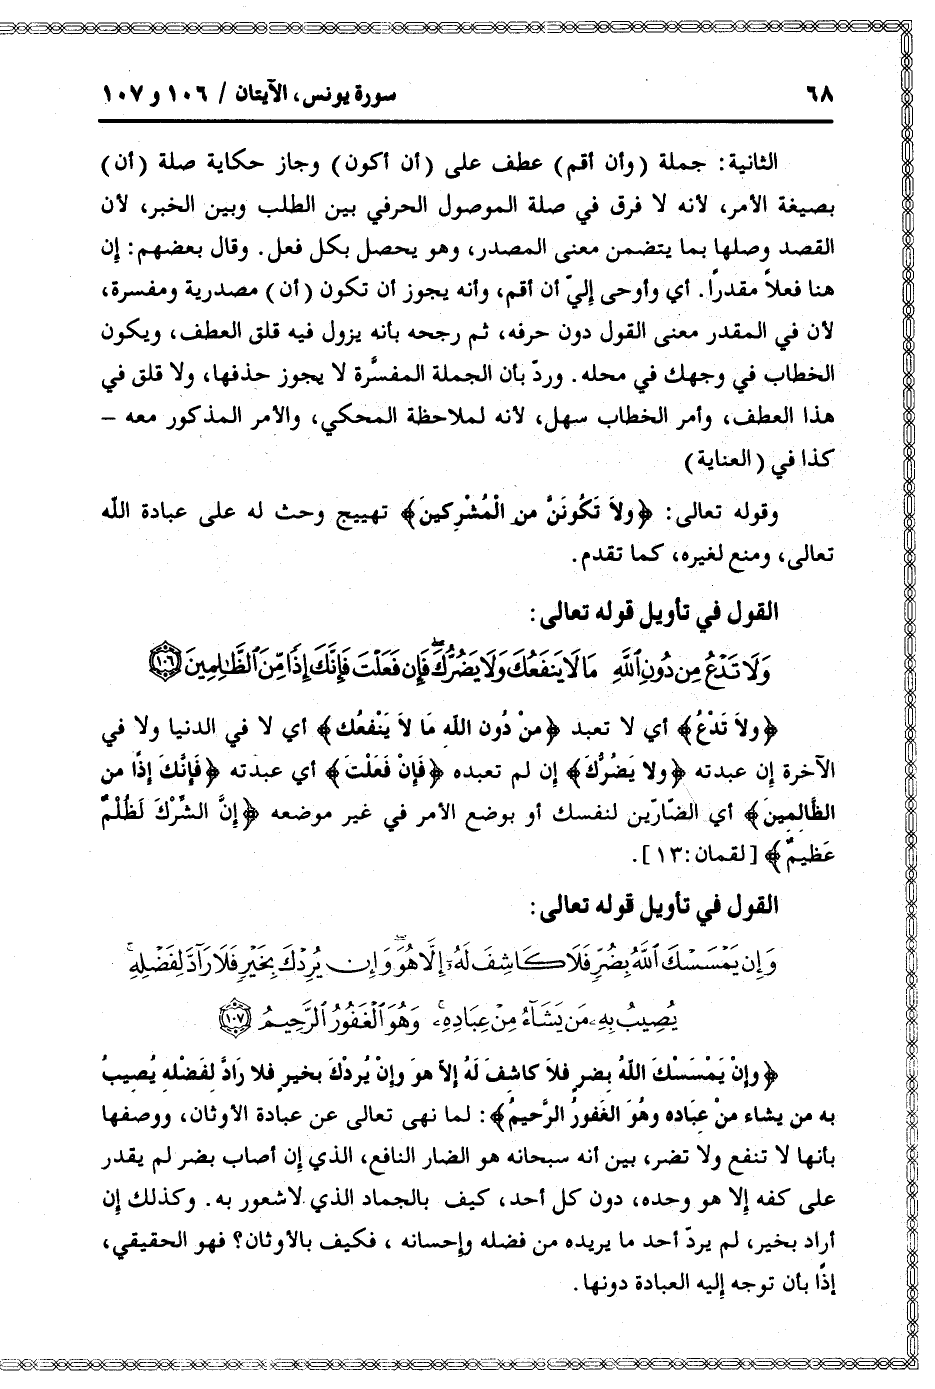 ٦٨
سورة يونس، الآيتان / ١٠٦ و ١٠٧
الثانية: جملة (وأن أقم) عطف على (أن أكون) وجاز حكاية صلة (أن)
بصيغة الأمر، لأنه لا فرق في صلة الموصول الحرفي بين الطلب وبين الخبر، لأن
القصد وصلها بما يتضمن معنى المصدر، وهو يحصل بكل فعل. وقال بعضهم: إن
هنا فعلاً مقدراً. أي وأوحى إليّ أن أقم، وأنه يجوز أن تكون (أن) مصدرية ومفسرة،
لأن في المقدر معنى القول دون حرفه، ثم رجحه بأنه يزول فيه قلق العطف، ويكون
الخطاب في وجهك في محله. وردّ بأن الجملة المفسَّرة لا يجوز حذفها، ولا قلق في
هذا العطف، وأمر الخطاب سهل، لأنه لملاحظة المحكي، والأمر المذكور معه –
كذا في (العناية)
وقوله تعالى: ﴿ولاَ تَكُونَنَّ من الْمُشْرِكينَ﴾ تهييج وحث له على عبادة اللّه
تعالى، ومنع لغيره، كما تقدم.
القول في تأويل قوله تعالى:
وَلَا تَدْعُ مِن دُونِ ٱللَّهِ مَا لَا يَنفَعُكَ وَلَا يَضُرُّكَۖ فَإِن فَعَلْتَ فَإِنَّكَ إِذًا مِّنَ ٱلظَّٰلِمِينَ ۝١٠٦
﴿ولاَ تَدْعُ﴾ أي لا تعبد ﴿منْ دُون اللّه مَا لاَ يَنْفعُك﴾ أي لا في الدنيا ولا في
الآخرة إن عبدته ﴿ولا يَضُرُّكَ﴾ إن لم تعبده ﴿فَإنْ فَعَلْتَ﴾ أي عبدته ﴿فَإِنَّكَ إذًا من
الظَّالِمينَ﴾ أي الضارّين لنفسك أو بوضع الأمر في غير موضعه ﴿إِنَّ الشِّرْكَ لَظُلْمٌ
عَظيمٌ﴾ [لقمان:١٣].
القول في تأويل قوله تعالى:
وَإِن يَمْسَسْكَ ٱللَّهُ بِضُرٍّ فَلَا كَاشِفَ لَهُۥٓ إِلَّا هُوَۖ وَإِن يُرِدْكَ بِخَيْرٍ فَلَا رَآدَّ لِفَضْلِهِۦۚ
يُصِيبُ بِهِۦ مَن يَشَآءُ مِنْ عِبَادِهِۦۚ وَهُوَ ٱلْغَفُورُ ٱلرَّحِيمُ ۝١٠٧
﴿وإنْ يَمْسَسْكَ اللّهُ بضر فلاَ كاشفَ لَهُ إلاّ هوَ وإنْ يُردْكَ بخير فلا رَادَّ لفَضْله يُصيبُ
به من يشاء منْ عبَاده وهُوَ الغَفورُ الرَّحيمُ﴾: لما نهى تعالى عن عبادة الأوثان، ووصفها
بأنها لا تنفع ولا تضر، بين أنه سبحانه هو الضار النافع، الذي إن أصاب بضر لم يقدر
على كفه إلا هو وحده، دون كل أحد، كيف بالجماد الذي لا شعور به. وكذلك إن
أراد بخير، لم يردّ أحد ما يريده من فضله وإحسانه ، فكيف بالأوثان؟ فهو الحقيقي،
إذاً بأن توجه إليه العبادة دونها.